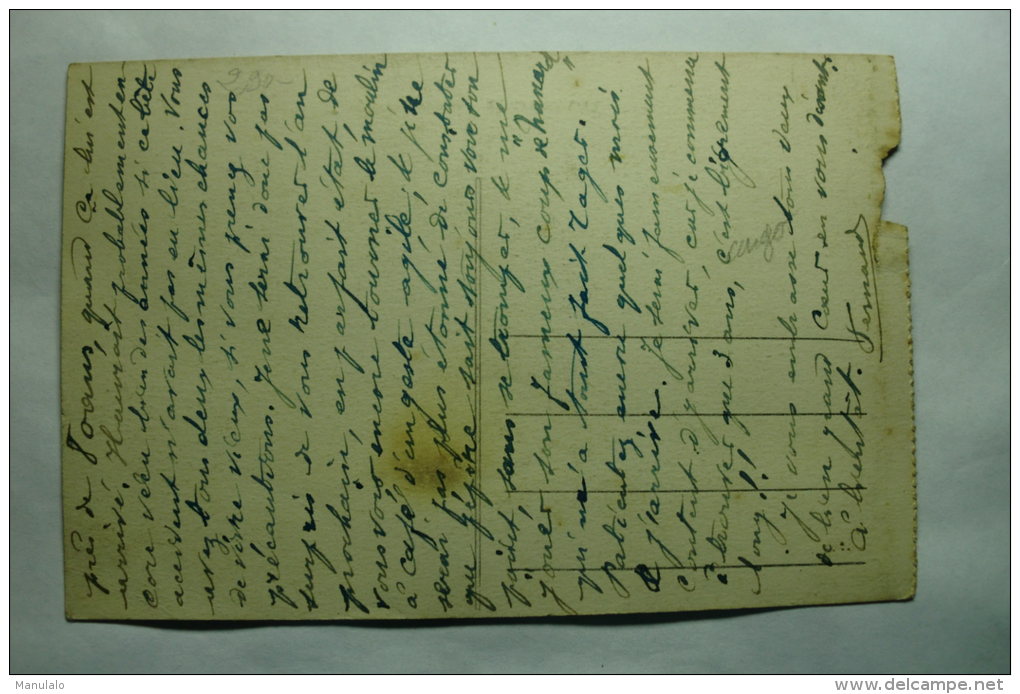 près de 70 ans, quand ça lui est
arrivé. Il aurait probablement en-
core vécu bien des années si cet
accident n'avait pas eu lieu. Vous
avez tous deux les mêmes chances
de vivre vieux, si vous prenez vos
précautions. Je ne serai donc pas
surpris de vous retrouver l'an
prochain, en parfait état de
vous voir encore tourner le moulin
à café d'un geste agile, &
serai pas plus étonné de constater
que pépère sait toujours voir son
point, sans se tromper, & me
jouer son fameux coup de
qui m'a tant fait rager.
Patientez encore quelques mois
& j'arrive. Je serai joliment
content d'y arriver, car je commence
à trouver que 3 ans, c'est bigrement
long!!
J' vous embrasse tous deux
de bien grand coeur en vous disant:
à bientôt.
Fernand
990-
Manulalo
www.delcampe.net